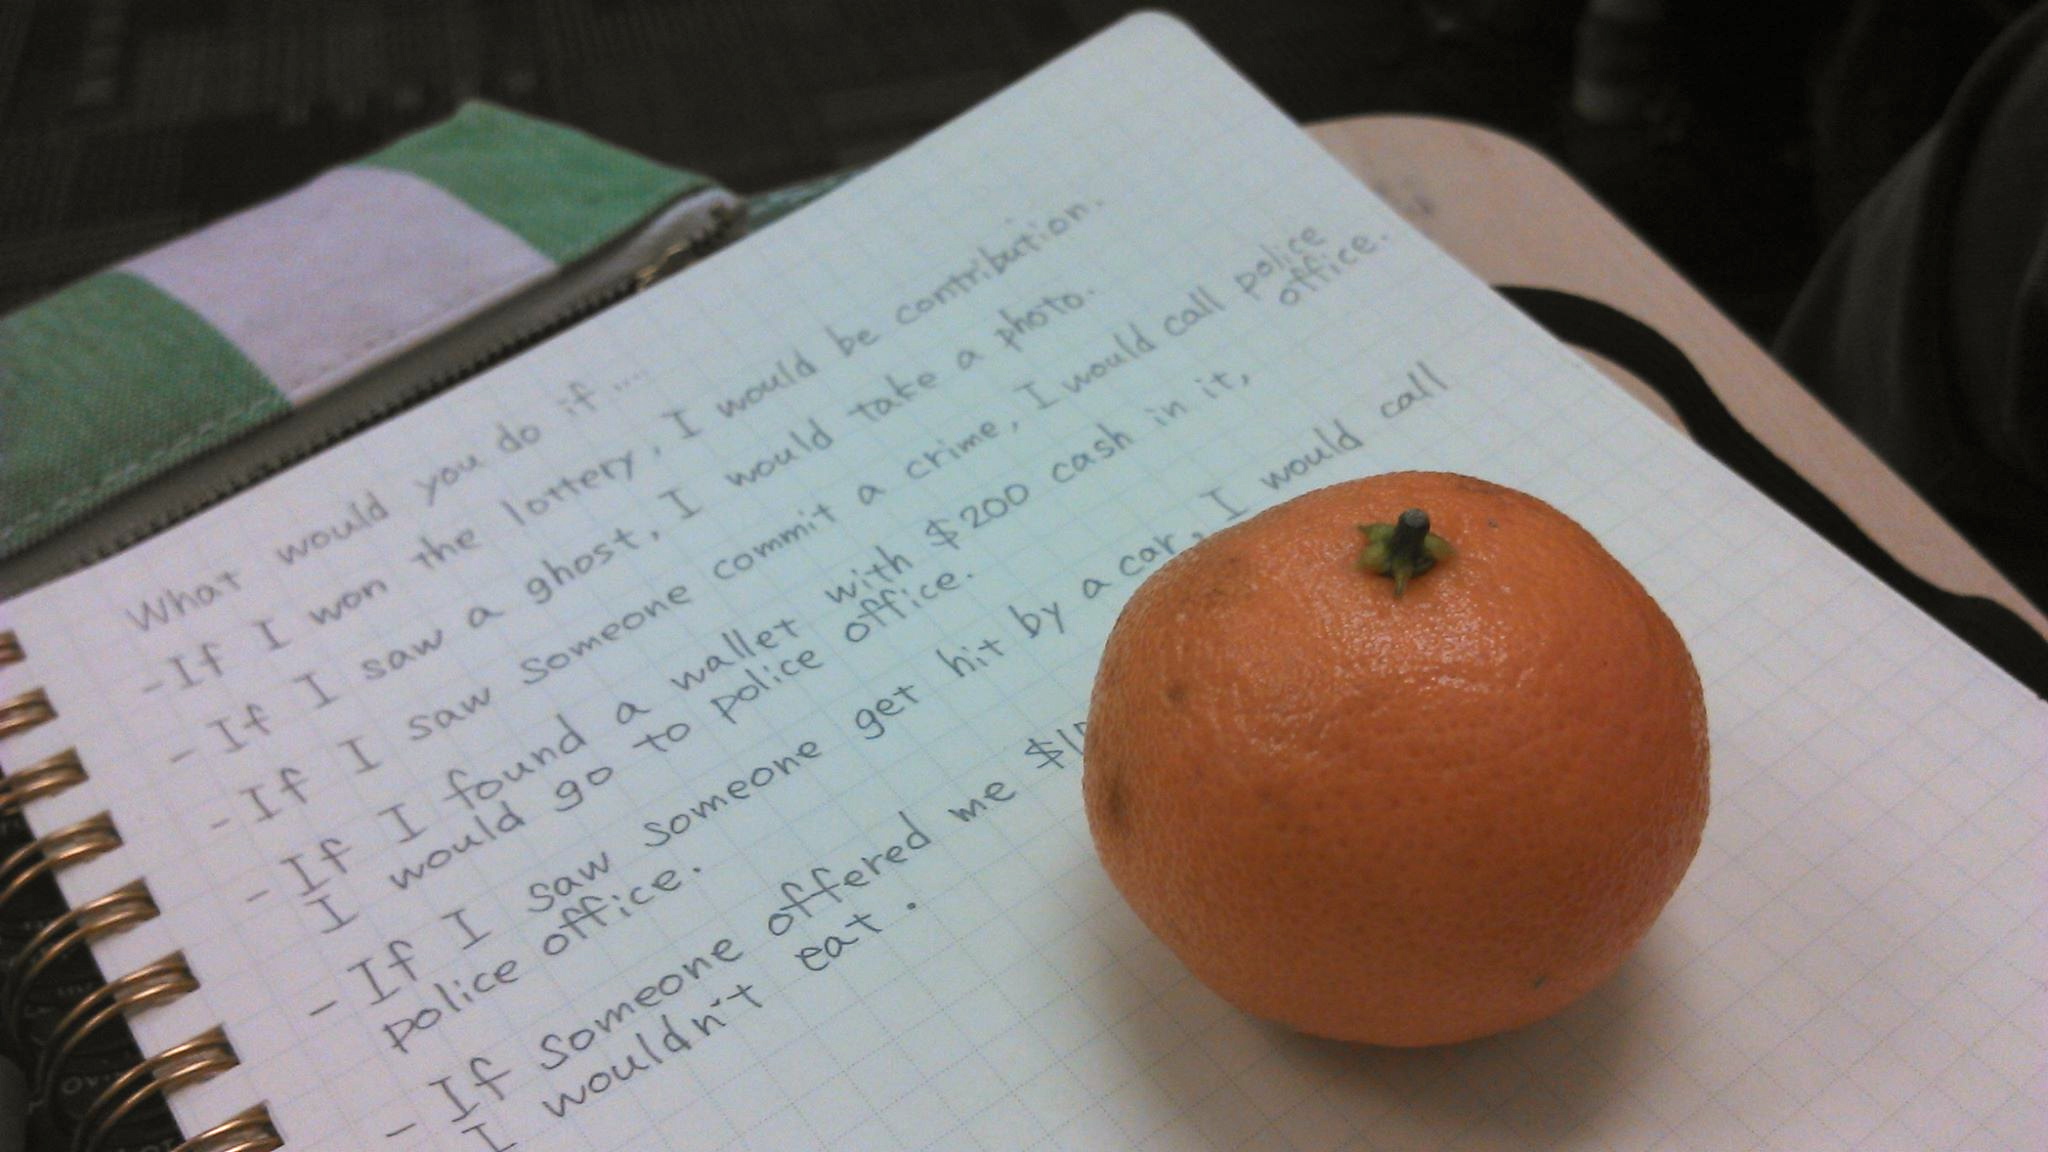 What would you do if...
- If I won the lottery, I would be contribution.
- If I saw a ghost, I would take a photo.
- If I saw someone commit a crime, I would call police
office.
- If I found a wallet with $200 cash in it,
I would go to police office.
- If I saw someone get hit by a car, I would call
police office.
- If someone offered me
I wouldn't eat.